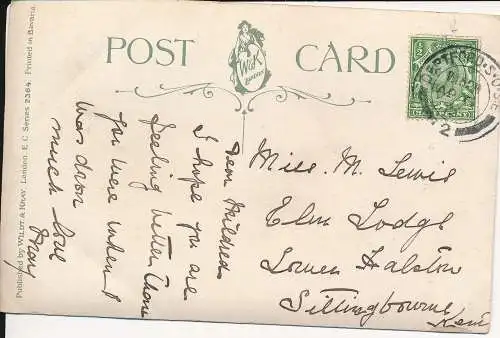 POST CARD
W&K
LONDON
Published by WILDT & KRAY, London, E.C. Series 2364. Printed in Bavaria.
Dear Mildred
I hope you are
feeling better than
you were when I
was down
much love
May
Miss. M. Lewis
Elm Lodge
Lower Halstow
Sittingbourne
Kent
DEPTFORD.S.O.S.E
12